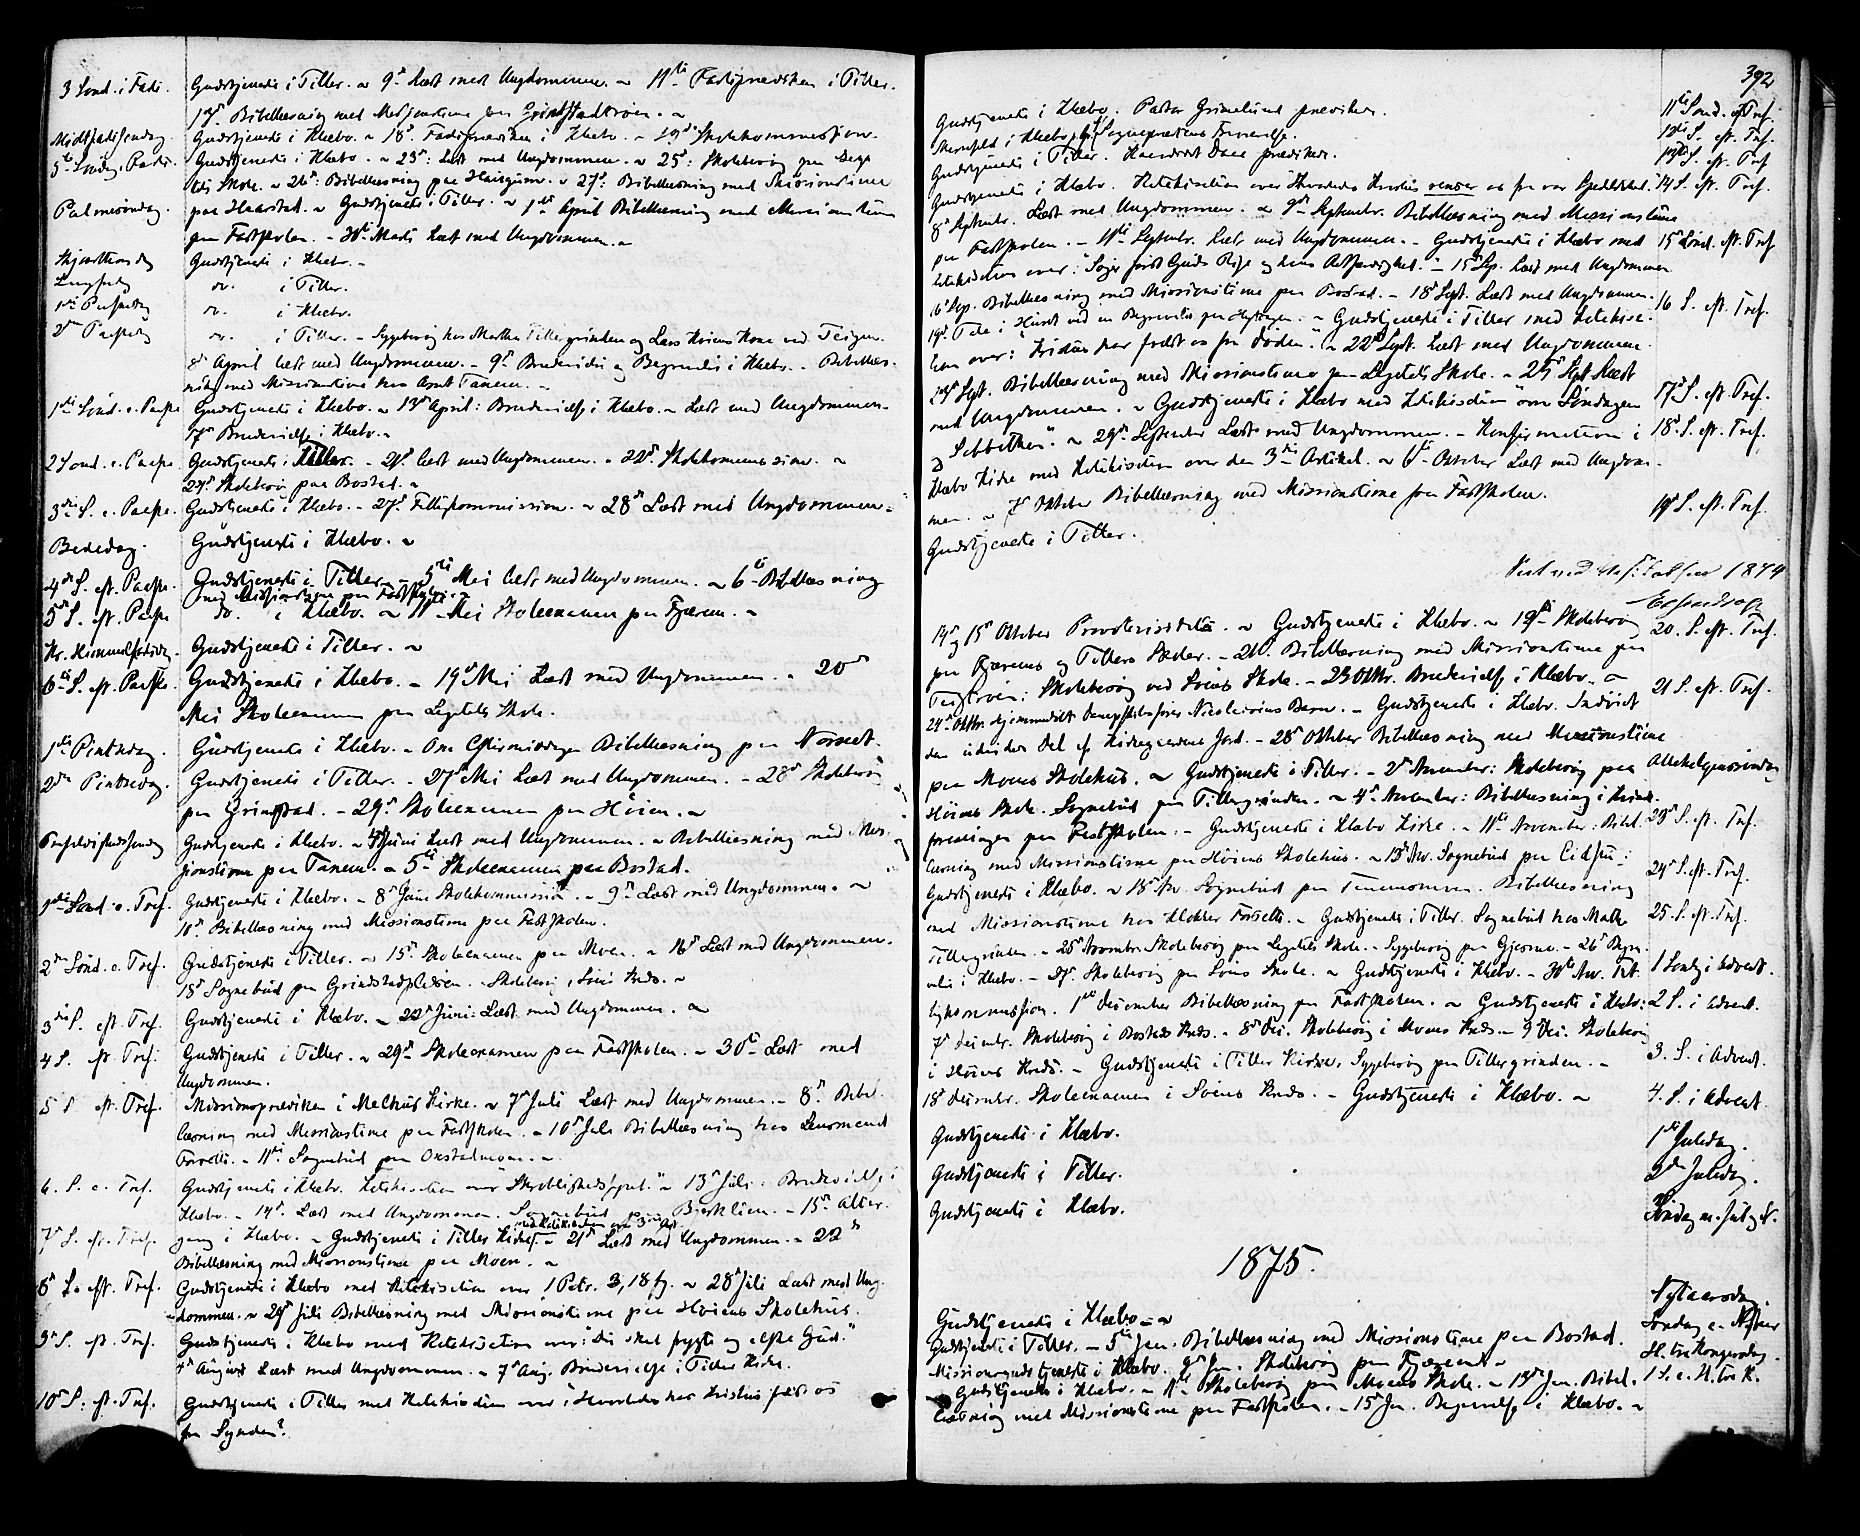 3 Sönd. i Faste. Gudstjeneste i Tiller. - 9de Læst med Ungdommen. - 11te Fasteprædiken i Tiller.
17de Bibellæsning med Missionstime paa Grindstadtrøen. -
Midtfastesöndag Gudstjeneste i Klæbo. - 18de Fasteprædiken i Klæbo. - 19de Skolekommission.
5te Söndag i Faste. Gudstjeneste i Klæbo. - 23de: Læst med Ungdommen. - 25de: Skolebesøg paa Lega-
tets Skole. - 26de: Bibellæsning paa Haugum. - 27de: Bibellæsning med Missionstime
Palmesöndag. paa Haarstad. - Gudstjeneste i Tiller. - 1ste April Bibellæsning med Missionstime
paa Fastskolen. - 30te Marts Læst med Ungdommen. -
Skjærthorsdag Gudstjeneste i Klæbo. -
Langfredag do. i Tiller.
1ste Paaskedag do. i Klæbo.
2den Paaskedag do. i Tiller. - Sygebesøg hos Marthe Tillergrinden og Lars Hoiens Kone ved Teigen.
8de April læst med Ungdommen. - 9de Brudevielse og Begravelse i Klæbo. - Bibellæs-
ning med Missionstime hos Arnt Tanem. -
1ste Sönd. e. Paaske Gudstjeneste i Klæbo. - 13de April: Brudevielse i Klæbo. - Læst med Ungdommen. -
17de Brudevielse i Klæbo. -
2 Sönd. e. Paaske. Gudstjeneste i Tiller. - 21de læst med Ungdommen. - 22de Skolekommission. -
24de Skolebesøg paa Bostad. -
3die S. e. Paaske. Gudstjeneste i Klæbo. - 27de Fattigkommission. - 28de Læst med Ungdommen. -
Bededag. Gudstjeneste i Klæbo. -
4de S. eft. Paaske. Gudstjeneste i Tiller. - 5te Mai læst med Ungdommen. - 6te Bibellæsning
med Missionstime paa Fastskolen. -
5te S. eft. Paaske do. i Klæbo. - 11te Mai Skoleexamen paa Fjærem. -
Kr. Himmelfartsdag. Gudstjeneste i Tiller. -
6te S. eft. Paaske. Gudstjeneste i Klæbo. - 19de Mai Læst med Ungdommen. - 20de
Mai Skoleexamen paa Legatets Skole.
1ste Pintsedag. Gudstjeneste i Klæbo. - Om Eftermiddagen Bibellæsning paa Norset.
2den Pintsedag. Gudstjeneste i Tiller. - 27de Mai Læst med Ungdommen. - 28de Skolebesøg
paa Grindstad. - 29de Skoleexamen paa Höien. -
Trefoldighedssöndag Gudstjeneste i Klæbo. - 4de Juni Læst med Ungdommen. - Bibellæsning med Mis-
sionstime paa Tanem. - 5te Skoleexamen paa Bostad.
1ste Sönd. e. Tref. Gudstjeneste i Klæbo. - 8de Juni Skolekommission. - 9de Læst med Ungdommen. -
10de Bibellæsning med Missionstime paa Fastskolen.
2den Sönd. e. Tref. Gudstjeneste i Tiller. - 15de Skoleexamen paa Moen. - 16de Læst med Ungdommen.
18de Sognebud paa Grindstadpladsen. Skolebesøg i Sveins Kreds. -
3die S. eft. Tref. Gudstjeneste i Klæbo. - 22de Juni: Læst med Ungdommen. -
4 S. eft. Tref. Gudstjeneste i Tiller. - 29de Skoleexamen paa Fastskolen. - 30te Læst med
Ungdommen.
5 S. eft. Tref. Missionsprædiken i Melhus Kirke. - 7de Juli Læst med Ungdommen. - 8de Bibel-
læsning med Missionstime paa Fastskolen. - 10de Juli Bibellæsning hos Lensmand
Forseth. - 11te Sognebud paa Onstadmoen. -
6. S. e. Tref. Gudstjeneste i Klæbo. Katekisation over "Skrøbelighedssynd." - 13de Juli: Brudevielse i
Klæbo. - 14de Læst med Ungdommen. Sognebud paa Bjerklien. - 15de Alter-
7de S. eft. Tref. gang i Klæbo. - Gudstjeneste i Tiller Kirke med Katekisation over 3die Art. - 21de Læst med Ungdommen. - 22de
Bibellæsning med Missionstime paa Moen. -
8de S. eft. Tref. Gudstjeneste i Klæbo med Katekisation over 1 Petr. 3, 18 fg. - 28de Juli Læst med Ung-
dommen. - 29de Juli Bibellæsning med Missionstime paa Höiens Skolehus.
9de S. eft. Tref. Gudstjeneste i Klæbo med Katekisation over: "Du skal frygte og elske Gud."
4de August Læst med Ungdommen. - 7de Aug. Brudevielse i Tiller Kirke.
10de S. eft. Tref. Gudstjeneste i Tiller med Katekisation over: "Hvorledes har Kristus frelst os
fra Synden?"
392
Gudstjeneste i Klæbo. Pastor Grimelund prædiker. 11te Sönd. eft. Tref.
Messefald i Klæbo paa Grund af Sognepræstens Fraværelse. 12te S. eft. Tref.
Gudstjeneste i Tiller. Kandidat Daae prædiker. 13de S. eft. Tref.
Gudstjeneste i Klæbo. Katekisation over Hvorledes Kristus renser os fra vor Spedalskhed. 14 S. eft. Tref.
8de Septembr. Læst med Ungdommen. - 9de Septembr. Bibellæsning med Missionstime
paa Fastskolen. - 11te Septembr. Læst med Ungdommen. - Gudstjeneste i Klæbo med 15de Sönd. eft. Tref.
Katekisation over: "Søger først Guds Rige og hans Retfærdighed." - 15de Sep. Læst med Ungdommen
16de Sep. Bibellæsning med Missionstime paa Bostad. - 18de Sept. Læst med Ungdommen. 16 S. eft. Tref.
19de Tale i Huset ved en Begravelse paa - Gudstjeneste i Tiller med Katekisa-
tion over: "Kristus har frelst os fra Døden." - 22de Sept. Læst med Ungdommen.
23de Sept. Bibellæsning med Missionstime paa Legatets Skole. - 25de Sept. Læst
med Ungdommen. - Gudstjeneste i Klæbo med Katekisation "om Söndagen 17de S. eft. Tref.
og Sabbathen". - 29de September Læst med Ungdommen. - Konfirmation i 18de S. eft. Tref.
Klæbo Kirke med Katekisation over den 3die Artikel. - 6te Oktober Læst med Ungdom-
men. - 7de Oktober Bibellæsning med Missionstime paa Fastskolen. 19de S. eft. Tref.
Gudstjeneste i Tiller.
1874
14de og 15de Oktober Provstevisitats. - Gudstjeneste i Klæbo. - 19de Skolebesøg 20. S. eft. Tref.
paa Fjærems og Tillers Skoler. - 21de Bibellæsning med Missionstime paa
Teigtrøen: Skolebesøg ved Sveins Skole. - 23 Oktbr. Brudevielse i Klæbo. - 21 S. eft. Tref.
24de Oktbr. hjemmedöbt Barn. - Gudstjeneste i Klæbo. Indviet
den udvidede Del af Kirkegaardens Jord. - 28de Oktober Bibellæsning med Missionstime
paa Moens Skolehus. - Gudstjeneste i Tiller. - 2den November: Skolebesøg paa Allehelgenssöndag
Höiens Skole. Sognebud paa Tillergrinden. - 4de November: Bibellæsning i Kvinde-
foreningen paa Fastskolen. - Gudstjeneste i Klæbo Kirke. - 11te November: Bibel- 23de S. eft. Tref.
læsning med Missionstime paa Höiens Skolehus. - 13de Nov. Sognebud paa
Gudstjeneste i Klæbo. - 18de Nov. Sognebud paa Tanemsmoen. Bibellæsning 24de S. eft. Tref.
med Missionstime hos Klokker Forseth. - Gudstjeneste i Tiller. Sognebud hos Marthe 25. S. eft. Tref.
Tillergrinden. - 25de Novembr. Skolebesøg paa Legatets Skole. - Sygebesøg paa Gjesmo. - 26de Begra-
velse i Klæbo. - 27de Skolebesøg paa Sveins Skole. - Gudstjeneste i Klæbo. - 30te Nov. Fat- 1 Sönd. i Advent.
tigkommission. 1ste December Bibellæsning paa Fastskolen. - Gudstjeneste i Klæbo: 2 S. i Advent.
7de Decembr. Skolebesøg i Bostads Kreds. - 8de Dec. Skolebesøg i Moens Kreds. - 9de Dec. Skolebesøg
i Höiens Kreds. - Gudstjeneste i Tiller Kirke. Sygebesøg paa Tillergrinden. - 3. S. i Advent.
18de Decembr. Skoleexamen i Sveins Kreds. - Gudstjeneste i Klæbo. - 4. S. i Advent.
Gudstjeneste i Klæbo. 1ste Juledag.
Gudstjeneste i Tiller. 2den Juledag.
Gudstjeneste i Klæbo. Söndag m. Jul og N.
1875.
Gudstjeneste i Klæbo. - Nytaarsdag.
Gudstjeneste i Tiller. - 5te Jan. Bibellæsning med Missionstime paa Bostad. Söndag e. Nytaar
Missionsgudstjeneste i Klæbo. 9de Jan. Skolebesøg paa Fjærem. - H. tre Kongersdag.
Gudstjeneste i Klæbo. - 11te Skolebesøg paa Moens Skole. - 13de Jan. Bibel- 1 S. e. H. tre K.
læsning med Missionstime paa Fastskolen. - 15de Jan. Begravelse i Klæbo. -